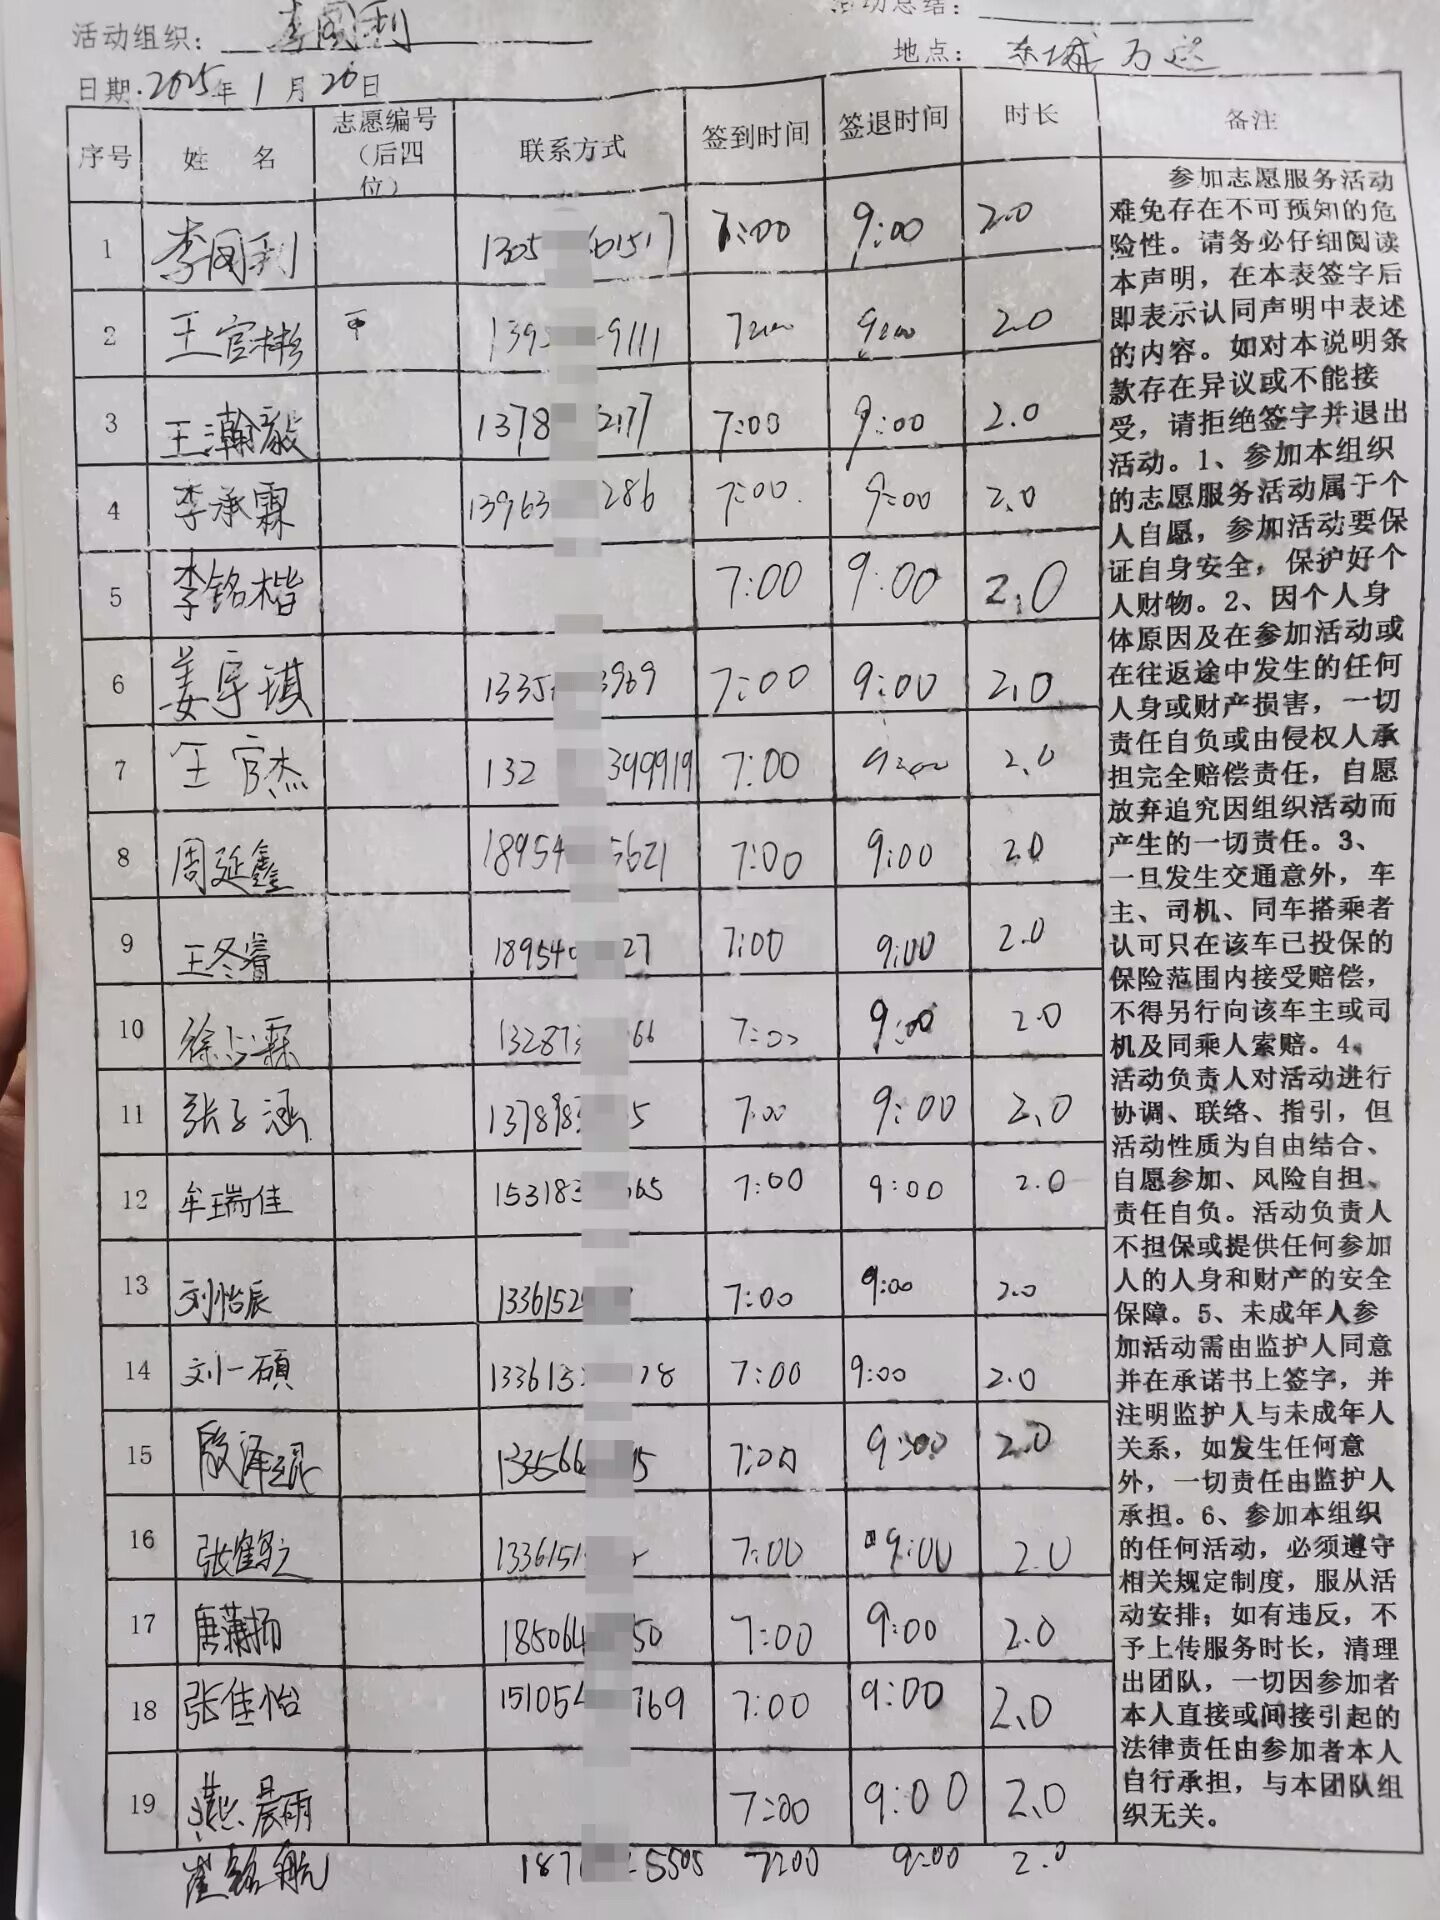 活动总结：
活动组织： 李国利
地点： 东城万达
日期：2025年1月26日
序号 姓 名 志愿编号（后四位） 联系方式 签到时间 签退时间 时长 备注
1 李国利 1305 01517 7:00 9:00 2.0
2 王官彬 139 9111 7:00 9:00 2.0
3 王瀚毅 1378 2177 7:00 9:00 2.0
4 李承霖 13963 286 7:00 9:00 2.0
5 李铭楷 7:00 9:00 2.0
6 姜宇琪 1335 3969 7:00 9:00 2.0
7 王官杰 132 399919 7:00 9:00 2.0
8 周延鑫 18954 5621 7:00 9:00 2.0
9 王冬睿 18954 27 7:00 9:00 2.0
10 徐 霖 13287 66 7:00 9:00 2.0
11 张子涵 137898 5 7:00 9:00 2.0
12 牟瑞佳 153183 65 7:00 9:00 2.0
13 刘怡辰 1336152 7:00 9:00 2.0
14 刘一硕 133615 28 7:00 9:00 2.0
15 殷泽 133566 5 7:00 9:00 2.0
16 张 133615 7:00 9:00 2.0
17 唐 扬 185064 50 7:00 9:00 2.0
18 张佳怡 151054 769 7:00 9:00 2.0
19 晨雨 7:00 9:00 2.0
崔铭航 187 5505 7:00 9:00 2.0
参加志愿服务活动
难免存在不可预知的危
险性。请务必仔细阅读
本声明，在本表签字后
即表示认同声明中表述
的内容。如对本说明条
款存在异议或不能接
受，请拒绝签字并退出
活动。1、参加本组织
的志愿服务活动属于个
人自愿，参加活动要保
证自身安全，保护好个
人财物。2、因个人身
体原因及在参加活动或
在往返途中发生的任何
人身或财产损害，一切
责任自负或由侵权人承
担完全赔偿责任，自愿
放弃追究因组织活动而
产生的一切责任。3、
一旦发生交通意外，车
主、司机、同车搭乘者
认可只在该车已投保的
保险范围内接受赔偿，
不得另行向该车主或司
机及同乘人索赔。4、
活动负责人对活动进行
协调、联络、指引，但
活动性质为自由结合、
自愿参加、风险自担、
责任自负。活动负责人
不担保或提供任何参加
人的人身和财产的安全
保障。5、未成年人参
加活动需由监护人同意
并在承诺书上签字，并
注明监护人与未成年人
关系，如发生任何意
外，一切责任由监护人
承担。6、参加本组织
的任何活动，必须遵守
相关规定制度，服从活
动安排；如有违反，不
予上传服务时长，清理
出团队，一切因参加者
本人直接或间接引起的
法律责任由参加者本人
自行承担，与本团队组
织无关。